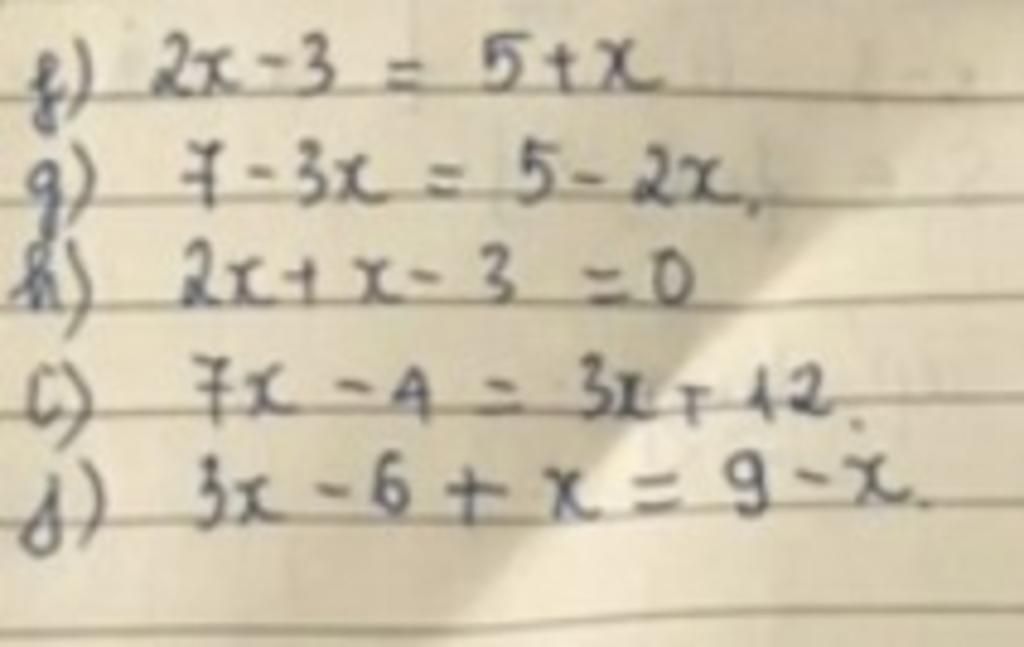 f) 2x - 3 = 5 + x
g) 7 - 3x = 5 - 2x,
h) 2x + x - 3 = 0
i) 7x - 4 = 3x + 12.
j) 3x - 6 + x = 9 - x.